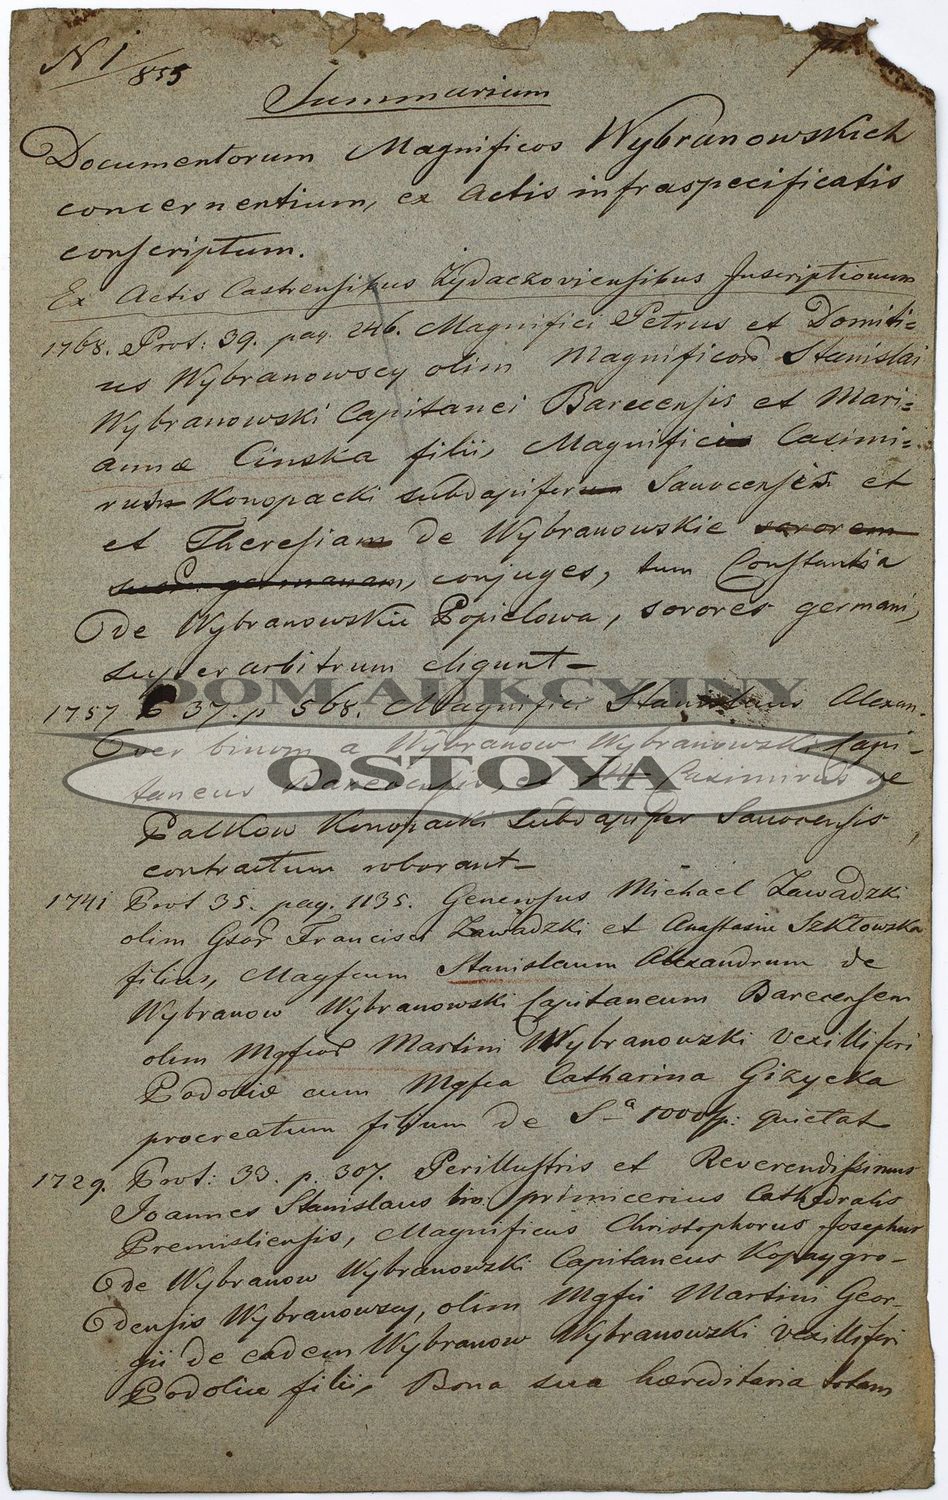 N 1/855
Summarium
Documentorum Magnificos Wybranowskich
concernentium, ex Actis infraspecificatis
conscriptum.
Ex Actis Castrensibus Zydaczoviensibus Inscriptionum
1768. Prot: 39. pag. 246. Magnifici Petrus et Domiti=
us Wybranowscy olim Magnificor Stanislai
Wybranowski Capitanei Barecensis et Mari=
annæ Cinska filii, Magnifici Casimi=
rus Konopacki subdapifer Sanocensis et
et Theresia de Wybranowskie sororem
suam germanam, conjuges, tum Constantia
de Wybranowskie Popielowa, sorores germani,
superarbitrum eligunt
1757 P 37. p 568. Magnifici Stanislaus Alexan-
der binom a Wybranow Wybranowski Capi-
taneus Barecensis, et Casimirus de
Palkow Konopacki Subdapifer Sanocensis
contractum roborant
1741 Prot 35. pag. 1135. Generosus Michael Zawadzki
olim Gsor Francisci Zawadzki et Anastasiæ Szkłowska
filius, Magfcum Stanislaum Alexandrum de
Wybranow Wybranowski Capitaneum Barecensem
olim Mgfcor Martini Wybranowski vexilliferi
Podoliæ cum Mgfca Catharina Gizycka
procreatum filium de Sa 1000 fp. quietat
1729. Prot: 33. p. 307. Perillustris et Reverendissimus
Joannes Stanislaus bin primicerius Cathedralis
Premisliensis, Magnificus Christophorus Josephus
de Wybranow Wybranowski Capitaneus Kopaygro-
densis Wybranowscy, olim Mgfci Martini Geor-
gii de eadem Wybranow Wybranowski vexilliferi
Podoliæ filii, Bona sua hæreditaria totam
DOM AUKCYJNY
OSTOYA